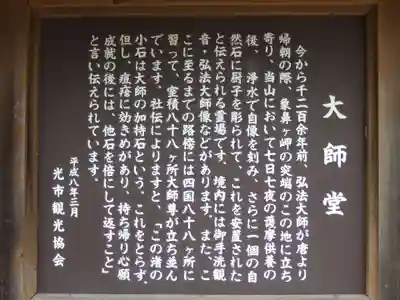 大師堂
今から千二百余年前、弘法大師が唐より
帰朝の際、象鼻ヶ岬の突端のこの地に立ち
寄り、当山において七日七夜の護摩供養の
後、浄水で自像を刻み、さらに一個の自
然石に厨子を彫られて、これを安置された
と伝えられる霊場です。境内には御手洗観
音・弘法大師像などがあります。また、こ
こに至るまでの路傍には四国八十八ヶ所に
習って、室積八十八ヶ所大師尊が立ち並ん
でいます。社伝によりますと、「この渚の
小石は大師の加持石という、これをとらず、
但し、瘧疾に効きめがあり、持ち帰り心願
成就の後には、他石を倍にして返すこと」
と言い伝えられています。
平成八年三月
光市観光協会